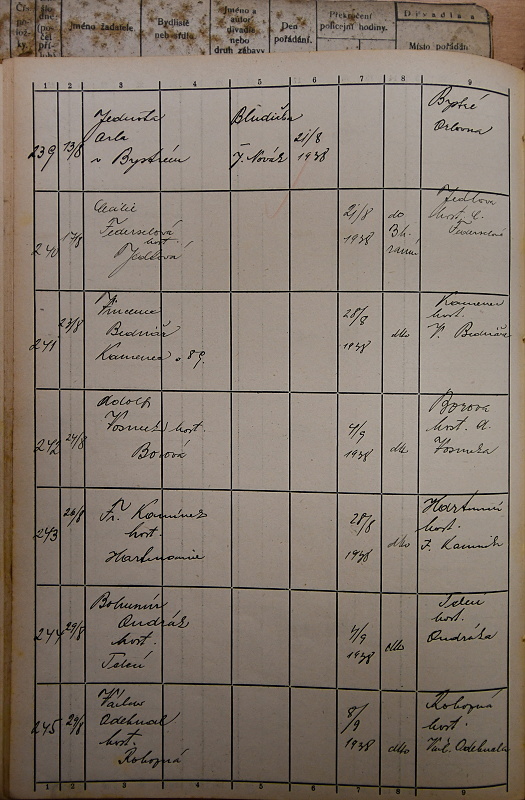 Jméno žadatele.
Bydliště
neb sídlo
Jméno a
autor
divadla
nebo
druh zábavy
Den
pořádání.
Překročení
policejní hodiny.
Divadlo a
Místo pořádán
1 2 3 4 5 6 7 8 9
239 13/8
Jednota
Orla
v Bystrém
Bludička
J. Novák
21/8
1938
Bystré
Orlovna
240 17/8
Federselová
host.
Jedlová
21/8
1938
do
3 h.
ranní
Jedlová
host. C.
Federselové
241 23/8
Vincenc
Bednář
Kamenec č 89.
28/8
1938
dto
Kamenec
host.
V. Bednáře
242 24/8
Adolf
host.
Borová
4/9
1938
dto
Borová
host. A.
243 26/8
Fr. Kamínek
host.
Hartmanice
28/8
1938
dto
host.
F. Kamínk
244 29/8
Bohumír
Ondráš
host.
Telecí
4/9
1938
dto
Telecí
host.
Ondráša
245 29/8
Václav
Odehnal
host.
Rohozná
8/9
1938
dto
Rohozná
host.
Václ. Odehnala
1 2 3 4 5 6 7 8 9